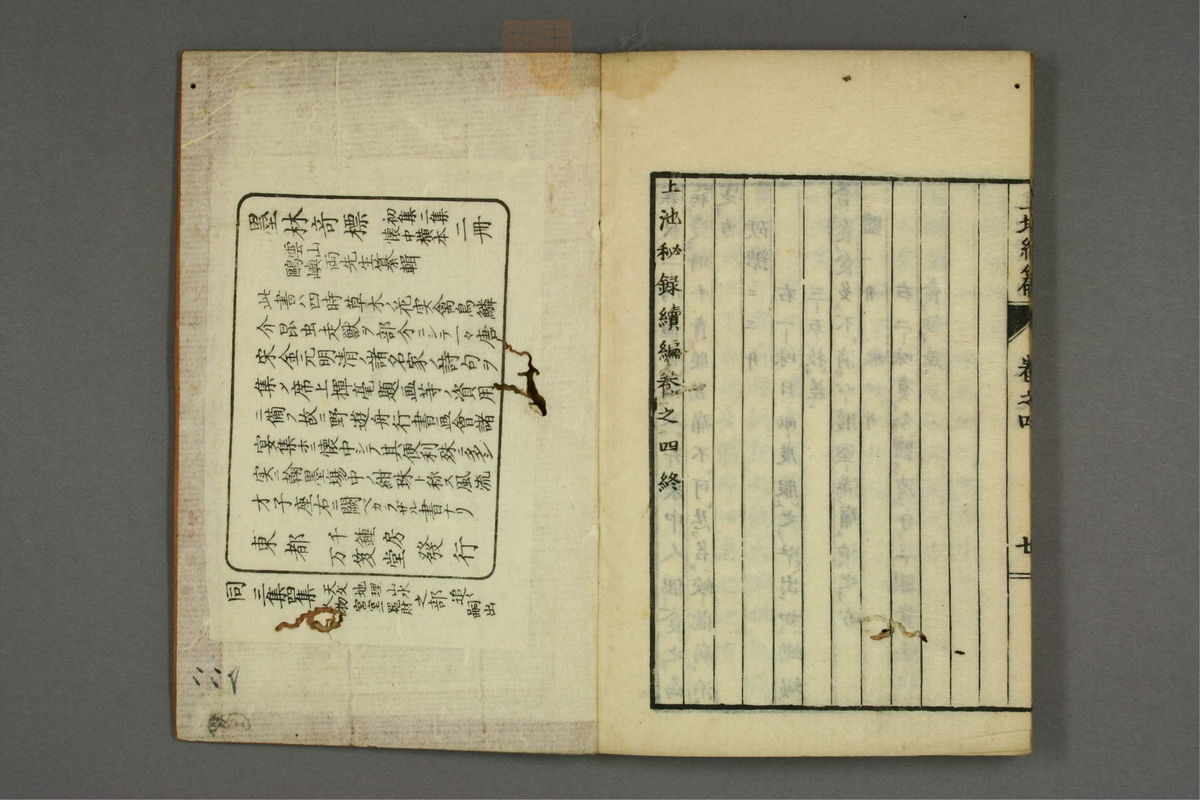 上池秘録續編卷之四終
卷之四
墨林竒標 初集二集 懐中横本 二冊
雲山 鷗嶼 両先生纂輯
此書ハ四時草木ノ花実禽鳥鱗
介昆虫走獣ヲ部分ニシテ一々唐
宋金元明清諸名家ノ詩句ヲ
集メ席上揮毫題画等ノ資用
ニ備フ故ニ野遊舟行書画會諸
宴集ホニ懐中シテ其便利殊ニ多シ
実ニ翰墨場中ノ紺珠ト称ス風流
才子座右ニ闕ベカラザル書ナリ
東都 千鍾房 万笈堂 發行
同 三集四集 天文地理山水 人物宮室器財 之部 追々嗣出